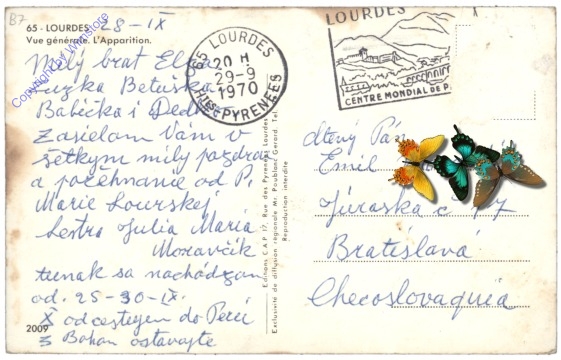 B7
65 - LOURDES 28-IX
Vue générale. L'Apparition.
Copyright of Wallstore
Milý brat
Zuzka Betuška
Babička i Dedko
Zasielam Vám v
šetkým milý pozdrav
a požehnanie od P.
Marie Lourskej
Sestra Julia Maria
Moravčik
tunak sa nachádzam
od. 25-30-IX.
X odcestujem do Perú
S Bohom ostavajte
2009
65 LOURDES
20 H
29-9
1970
HTES PYRENEES
LOURDES
CENTRE MONDIAL DE P
Editions C.A.P. 17, Rue des Pyrénées Lourdes
Exclusivité de diffusion régionale Mr. Poublanc Gerard. Tel.
Reproduction interdite
Pán
Emil
Juraska č 17
Bratislavá
Checoslovaquia